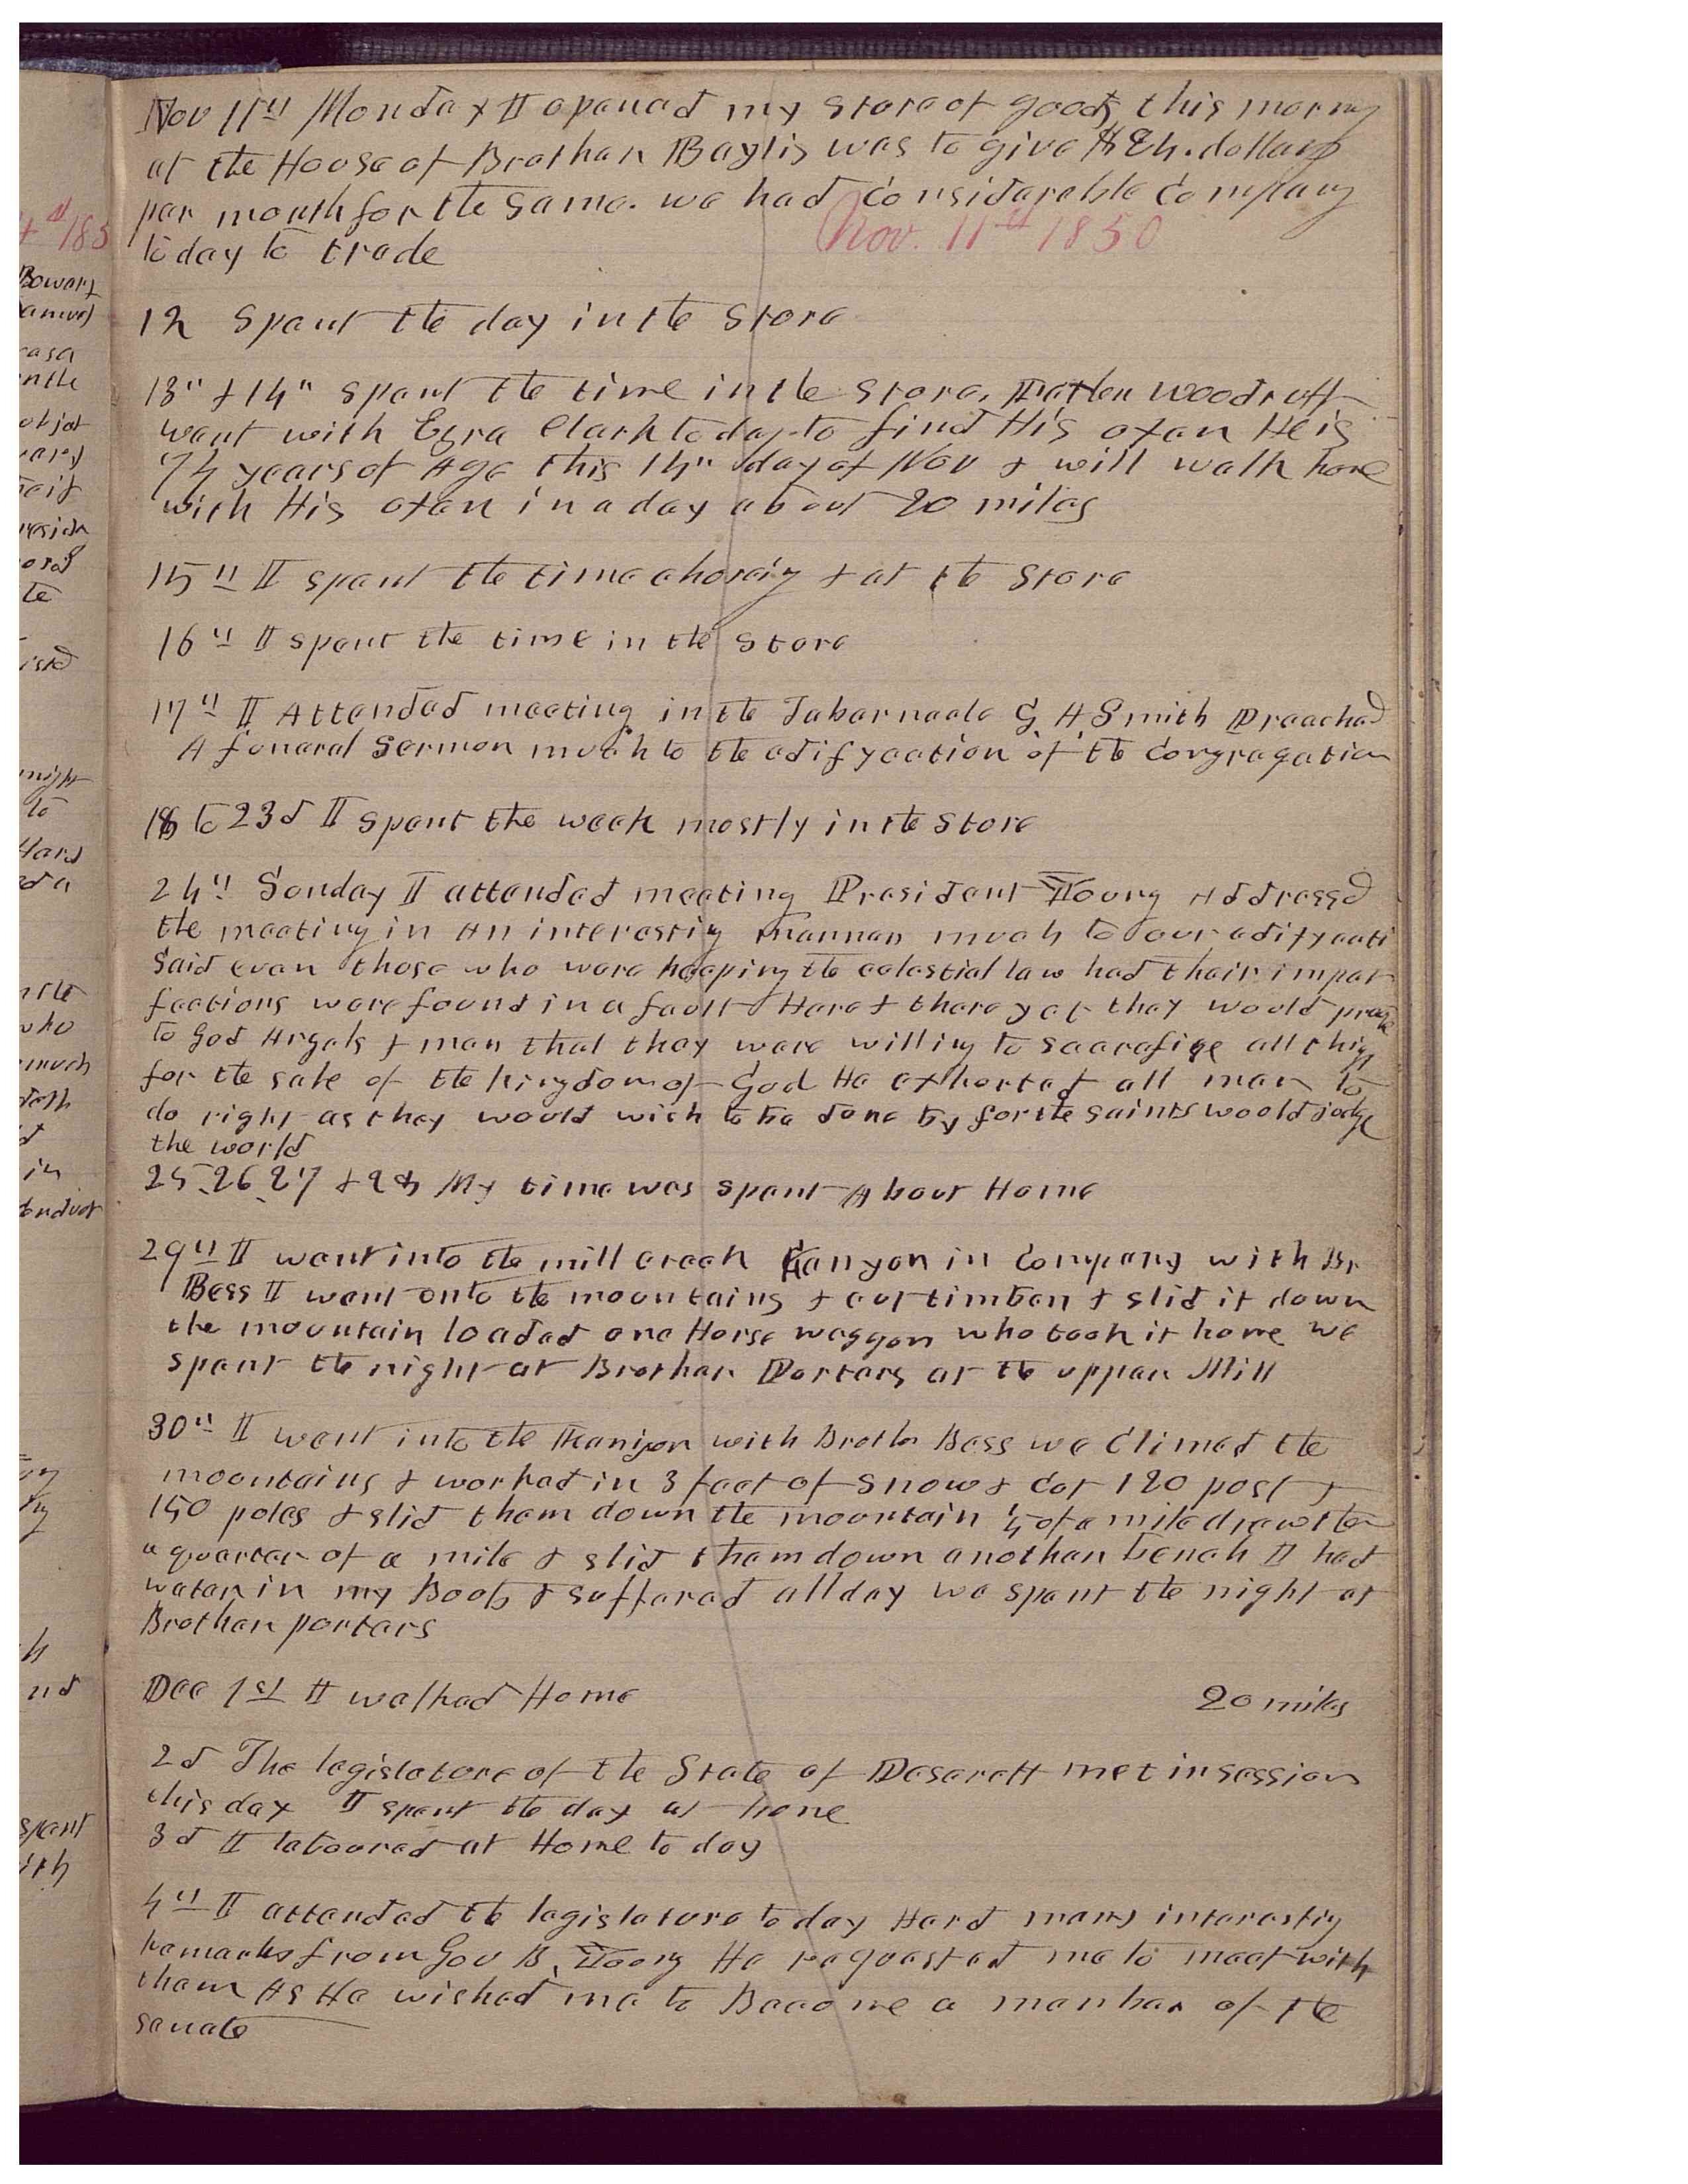 Nov 11th Monday I opened my store of goods this morning
at the House of Brother Baylis was to give $24. dollars
per month for the same. we had considerable company
today to trade
Nov. 11th 1850
12 Spent the day in the store
13th & 14th spent the time in the store. Father Woodruff
went with Ezra Clark today to find His oxen He is
74 years of Age this 14th day of Nov & will walk home
with His oxen in a day about 20 miles
15th I spent the time choreing & at the store
16th I spent the time in the store
17th I Attended meeting in the Tabernacle G A Smith Preached
A funeral Sermon much to the edifycation of the congregation
18 to 23d I spent the week mostly in the store
24th Sunday I attended meeting President Young Addressed
the meeting in An interesting mannar much to our edifycati
said even those who were keeping the celestial law had their imper
fections were found in a fault Here & there yet they would prove
to God Angels & man that they were willing to sacrafice all things
for the sake of the kingdom of God He exhorted all men to
do right as they would wish to be done by for the saints would judge
the world
25, 26, 27 & 28 My time was spent About Home
29th I went into the mill creek Canyon in company with Br
Bess I went onto the mountains & cut timber & slid it down
the mountain loaded one Horse waggon who took it home we
spent the night at Brother Porters at the upper Mill
30th I went into the Kanyon with Brother Bess we climed the
mountains & worked in 3 feet of snow & cut 120 post &
150 poles & slid them down the mountain of a mile drew them
a quarter of a mile & slid them down another bench I had
water in my Boots & suffered all day we spent the night at
Brother porters
Dec 1st I walked Home 20 miles
2d The legislature of the State of Deserett met in session
this day I spent the day at home
3d I laboured at Home to day
4th I attended the legislature to day Herd many interesting
remarks from Gov B. Young He requested me to meet with
them As He wished me to Become a member of the
senate